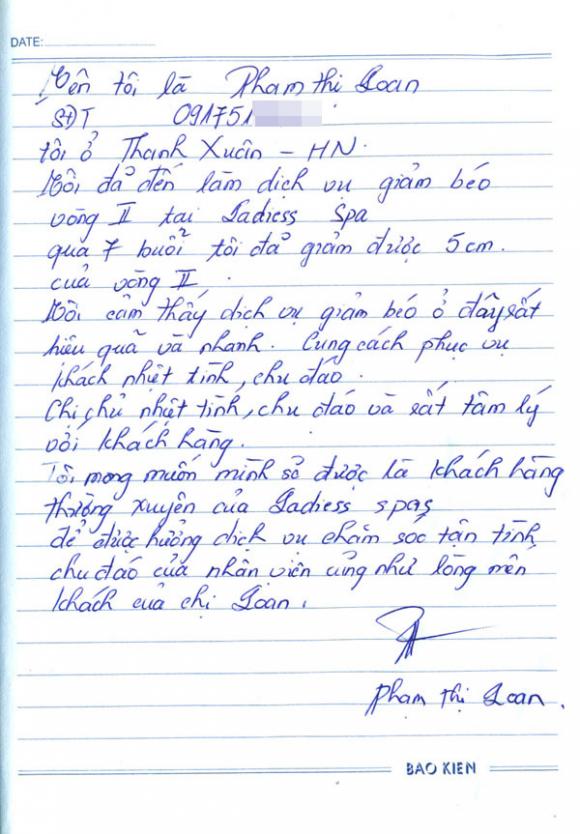 DATE:
Tên tôi là Phạm thị Loan
SĐT 091751
tôi ở Thanh Xuân - HN.
Tôi đả đến làm dịch vụ giảm béo
vòng II tại Ladiess Spa
qua 7 buổi tôi đả giảm được 5cm.
của vòng II.
Tôi cảm thấy dịch vụ giảm béo ở đây rất
hiệu quả và nhanh. Cung cách phục vụ
khách nhiệt tình, chu đáo.
Chị chủ nhiệt tình, chu đáo và rất tâm lý
với khách hàng.
Tôi mong muốn mình sẻ được là khách hàng
thường xuyên của Ladiess spas
để được hưởng dịch vụ chăm sóc tận tình,
chu đáo của nhân viên củng như lòng mến
khách của chị Loan.
Phạm thị Loan.
BAO KIEN